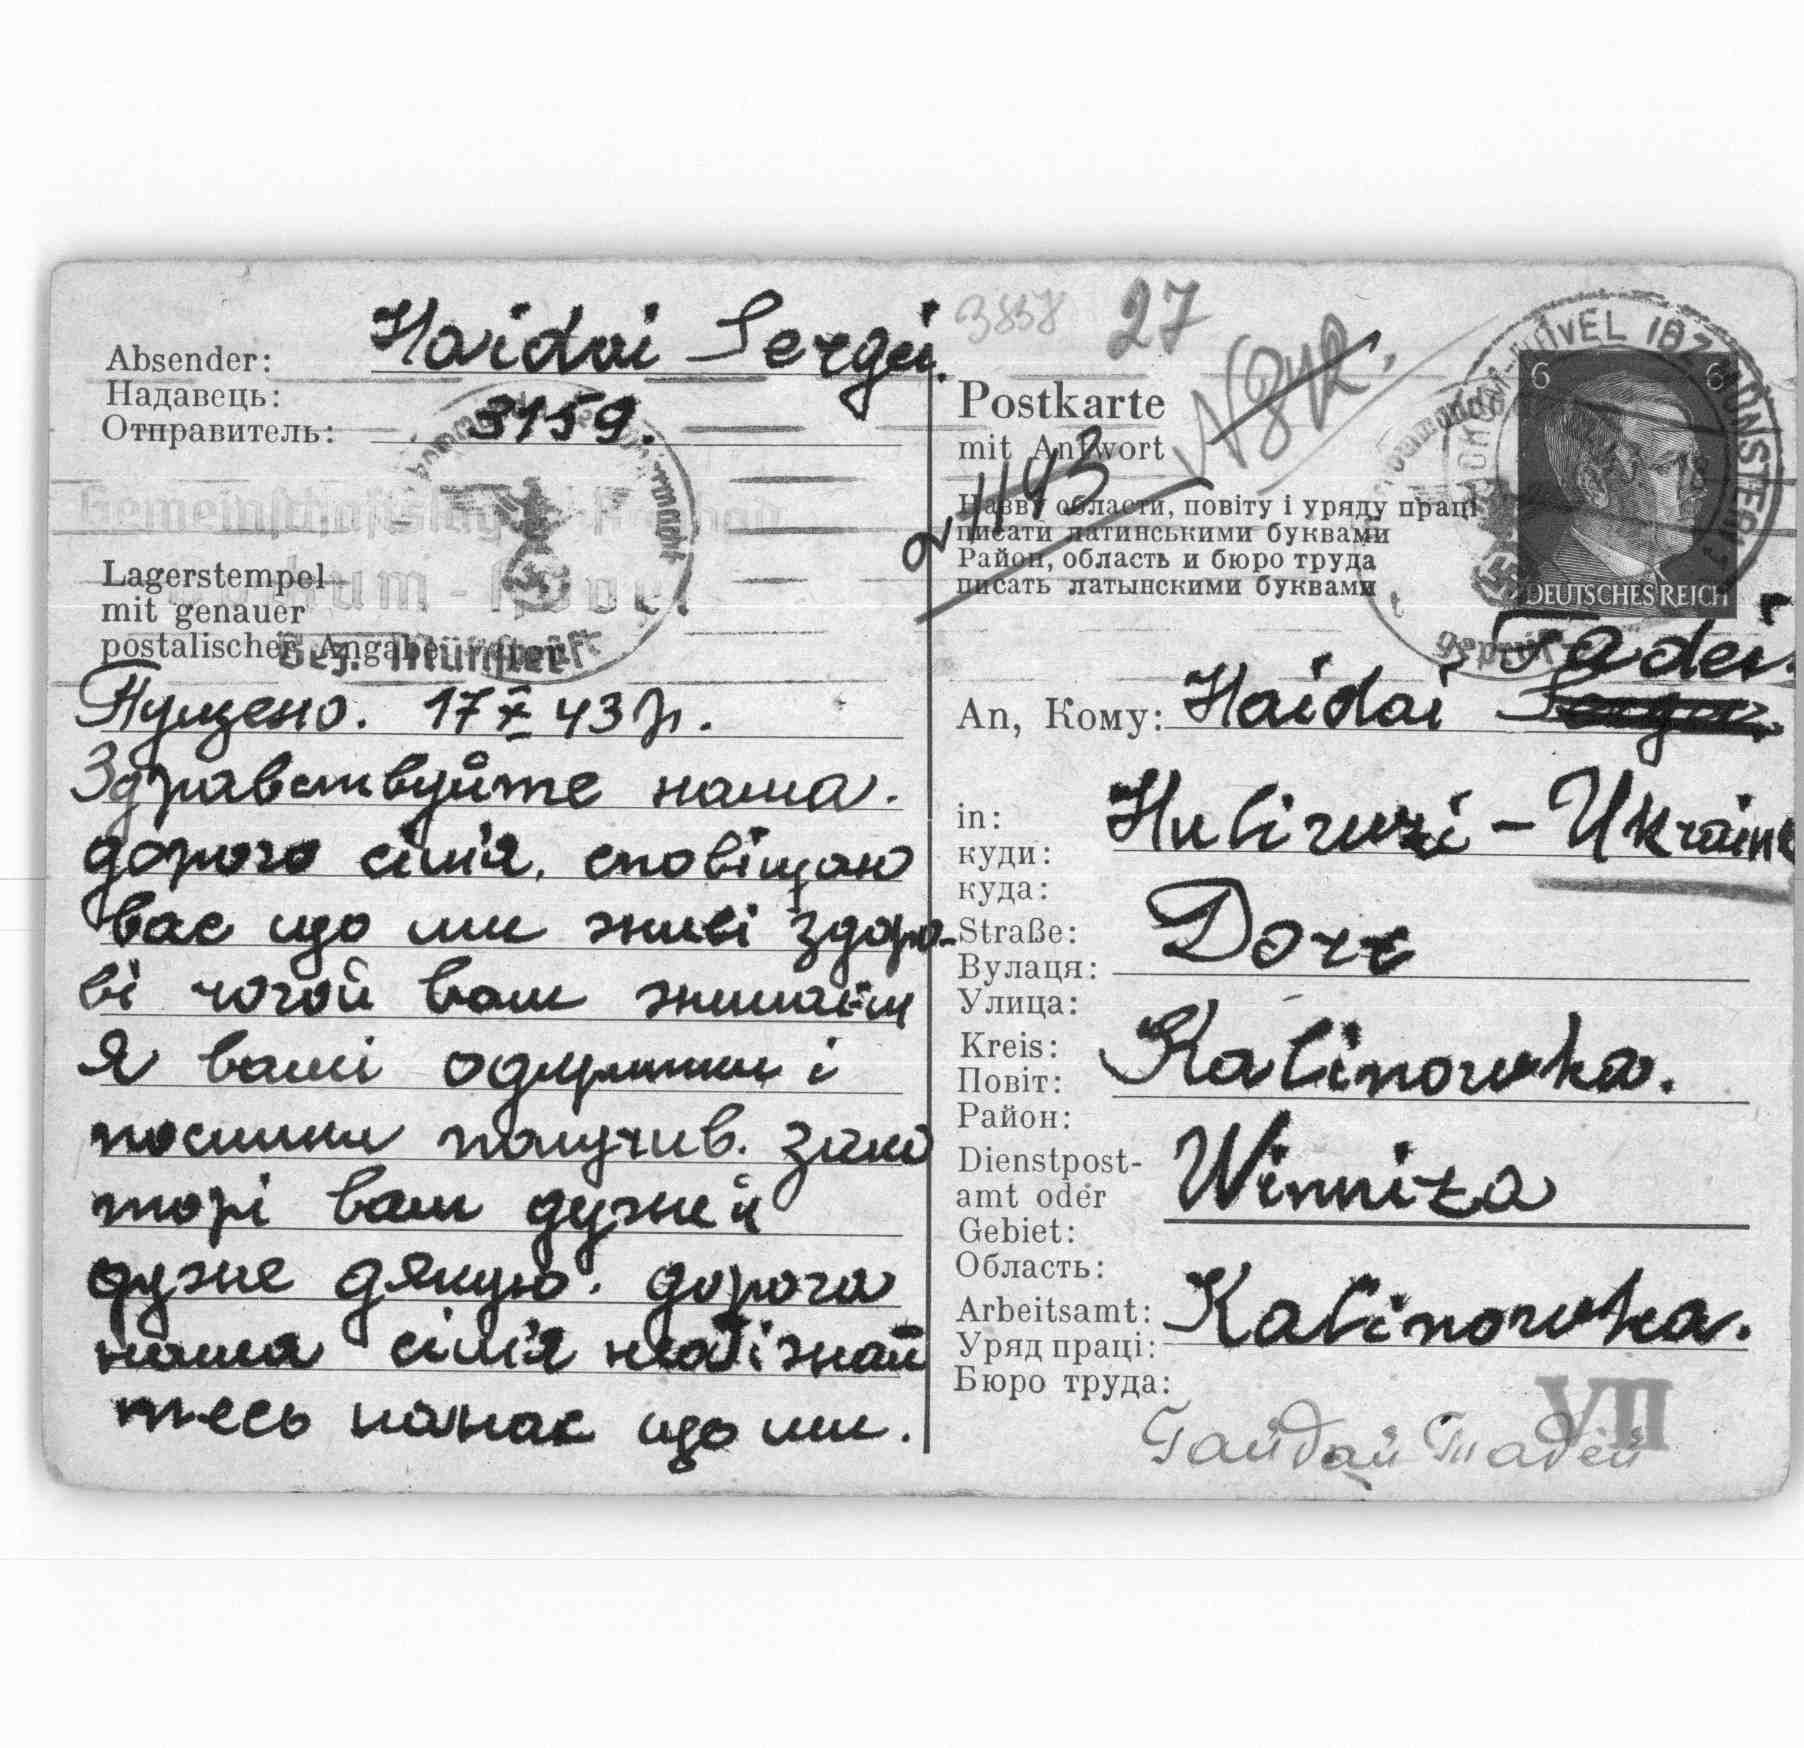 Absender:
Надавець:
Отправитель:
Haidai Sergei.
3159.
Lagerstempel
mit genauer
postalischer Angabe
Bez. Münster
Пущено. 17 X 43 р.
Здравствуйте наша.
дорого сімʼя. сповіщаю
вас що ми живі здоро-
ві чогой вам
Я вашi і
посилки получив. зако
торі вам дужей
дуже дякую. дорога
наша сімʼя
тесь нанас що ми.
3858 27
Postkarte
mit Antwort
2 11 43
Назву області, повіту і уряду праці
писати латинськими буквами
Район, область и бюро труда
писать латынскими буквами
6 6
DEUTSCHES REICH
geprüft
Tadei.
An, Кому: Haidai
in:
куди:
куда:
Huliruzi - Ukraine
Straße:
Вулаця:
Улица:
Dorf
Kreis:
Повіт:
Район:
Kalinowka.
Dienstpost-
amt oder
Gebiet:
Область:
Winniza
Arbeitsamt:
Уряд праці:
Бюро труда:
Kalinowka.
VII
Гайдай Тадей